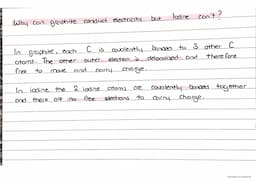 Why can graphite conduct electricity but iodine can't?
In graphite, each C is covalently bonded to 3 other C
atoms. The other outer electron is delocalised and therefore
free to move and carry charge.
In iodine the 2 iodine atoms are covalently bonded together
and there are no free electrons to carry charge.